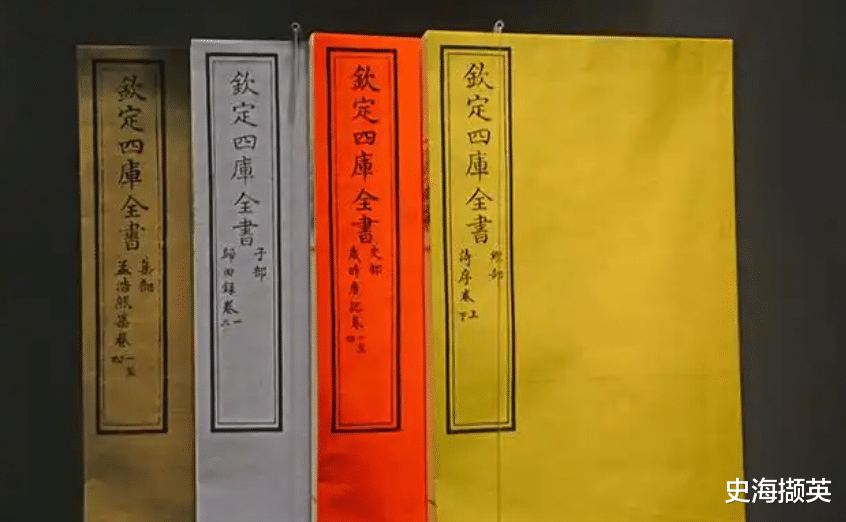 欽定四庫全書
經部
詩序卷上下
欽定四庫全書
史部
歲時廣記卷一至四
欽定四庫全書
子部
歸田錄卷一二
欽定四庫全書
集部
孟浩然集卷一至四
史海撷英